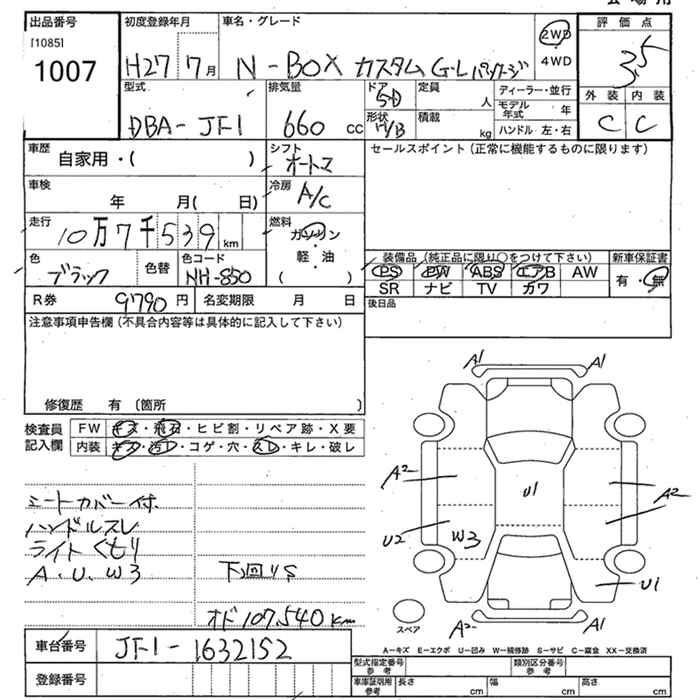 出品番号 初度登録年月 車名・グレード 評価点
[1085] 1007 H27 7月 N-BOX カスタム G-L パッケージ 2WD 4WD 3.5
型式 排気量 ドア 定員 ディーラー・並行 外装 内装
DBA-JF1 660 cc 5D 人 モデル年式 年 C C
形状 H/B 積載 kg ハンドル 左・右
車歴 シフト セールスポイント (正常に機能するものに限ります)
自家用・( ) オートマ
車検 冷房
年 月( 日) A/C
走行 燃料
10万7千539km ガソリン・軽油 ( )
色 色コード 装備品 (純正品に限り○をつけて下さい) 新車保証書
ブラック 色替 NH-850 PS PW ABS エアB AW 有・無
SR ナビ TV カワ
R券 9790円 名変期限 月 日 後日品
注意事項申告欄 (不具合内容等は具体的に記入して下さい)
修復歴 有 (箇所 )
検査員記入欄 FW キズ・飛石・ヒビ割・リペア跡・X要
内装 キズ・汚レ・コゲ・穴・スレ・キレ・破レ
シートカバー付
ハンドルスレ
ライトくもり
A・U、W3 下回りS
オド107,540km
A1 A1
A2 U1 A2
U2 W3
U1
A2 A1
スペア
A=キズ E=エクボ U=凹み W=補修跡 S=サビ C=腐食 XX=交換済
車台番号 JF1-1632152
型式指定番号 参考 類別区分番号 参考
登録番号 車庫証明用 参考 長さ cm 幅 cm 高さ cm